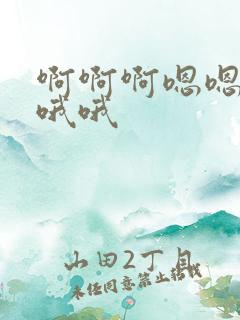 啊啊啊嗯嗯
哦哦
山田2丁目
未经同意禁止转载